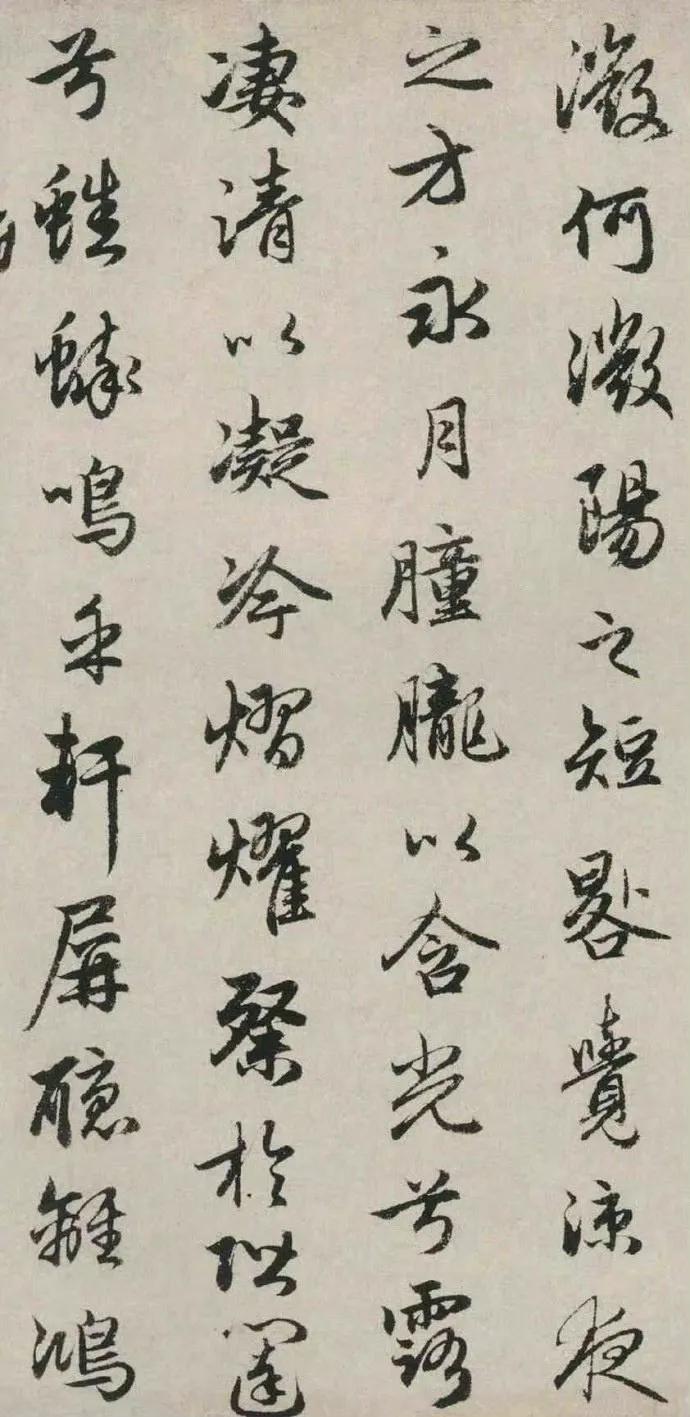 澂何澂陽之短晷覺涼夜
之方永月朣朧以含光兮露
凄清以凝冷熠燿粲於階闥
兮蟋蟀鳴乎軒屏聽離鴻